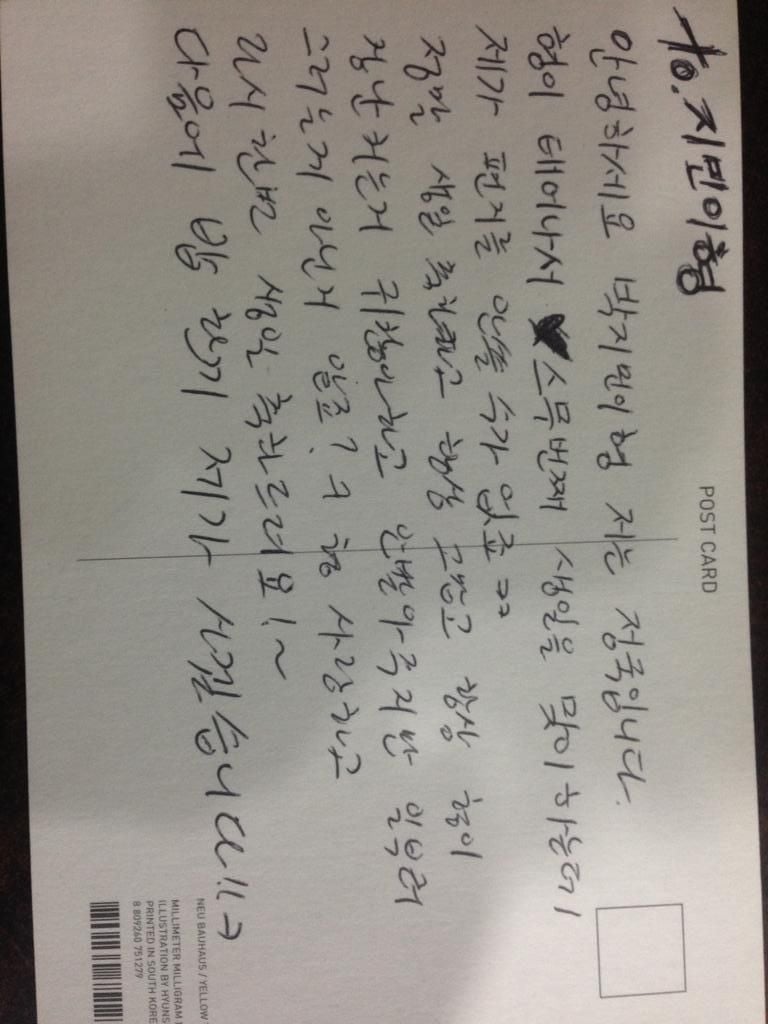 to. 지민이형
POST CARD
안녕하세요 박지민이형 저는 정국입니다.
형이 태어나서 스무번째 생일을 맞이하는데
제가 편지를 안쓸 수가 없죠 ㅋㅋ
정말 생일 축하하고 항상 고맙고 항상 형이
장난치는거 귀찮아하고 안받아주지만 일부러
그러는게 아닌거 알죠? 형 사랑하고
다시 한번 생일 축하드려요!~
다음에 밥 한끼 제가 사겠습니다!!
NEU BAUHAUS / YELLOW
MILLIMETER MILLIGRAM
ILLUSTRATION BY HYUNS
PRINTED IN SOUTH KORE
8 809260 751279